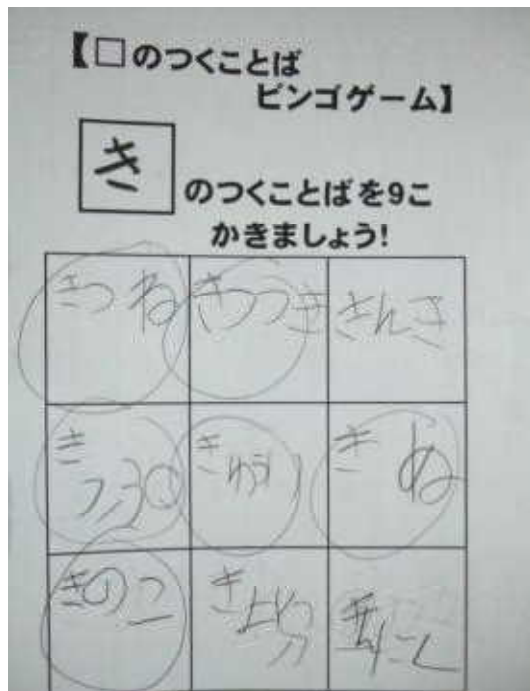 【□のつくことば
ビンゴゲーム】
き
のつくことばを9こ
かきましょう!
きつね
きつつき
きんき
き
きゅうり
きぬ
きのこ
き